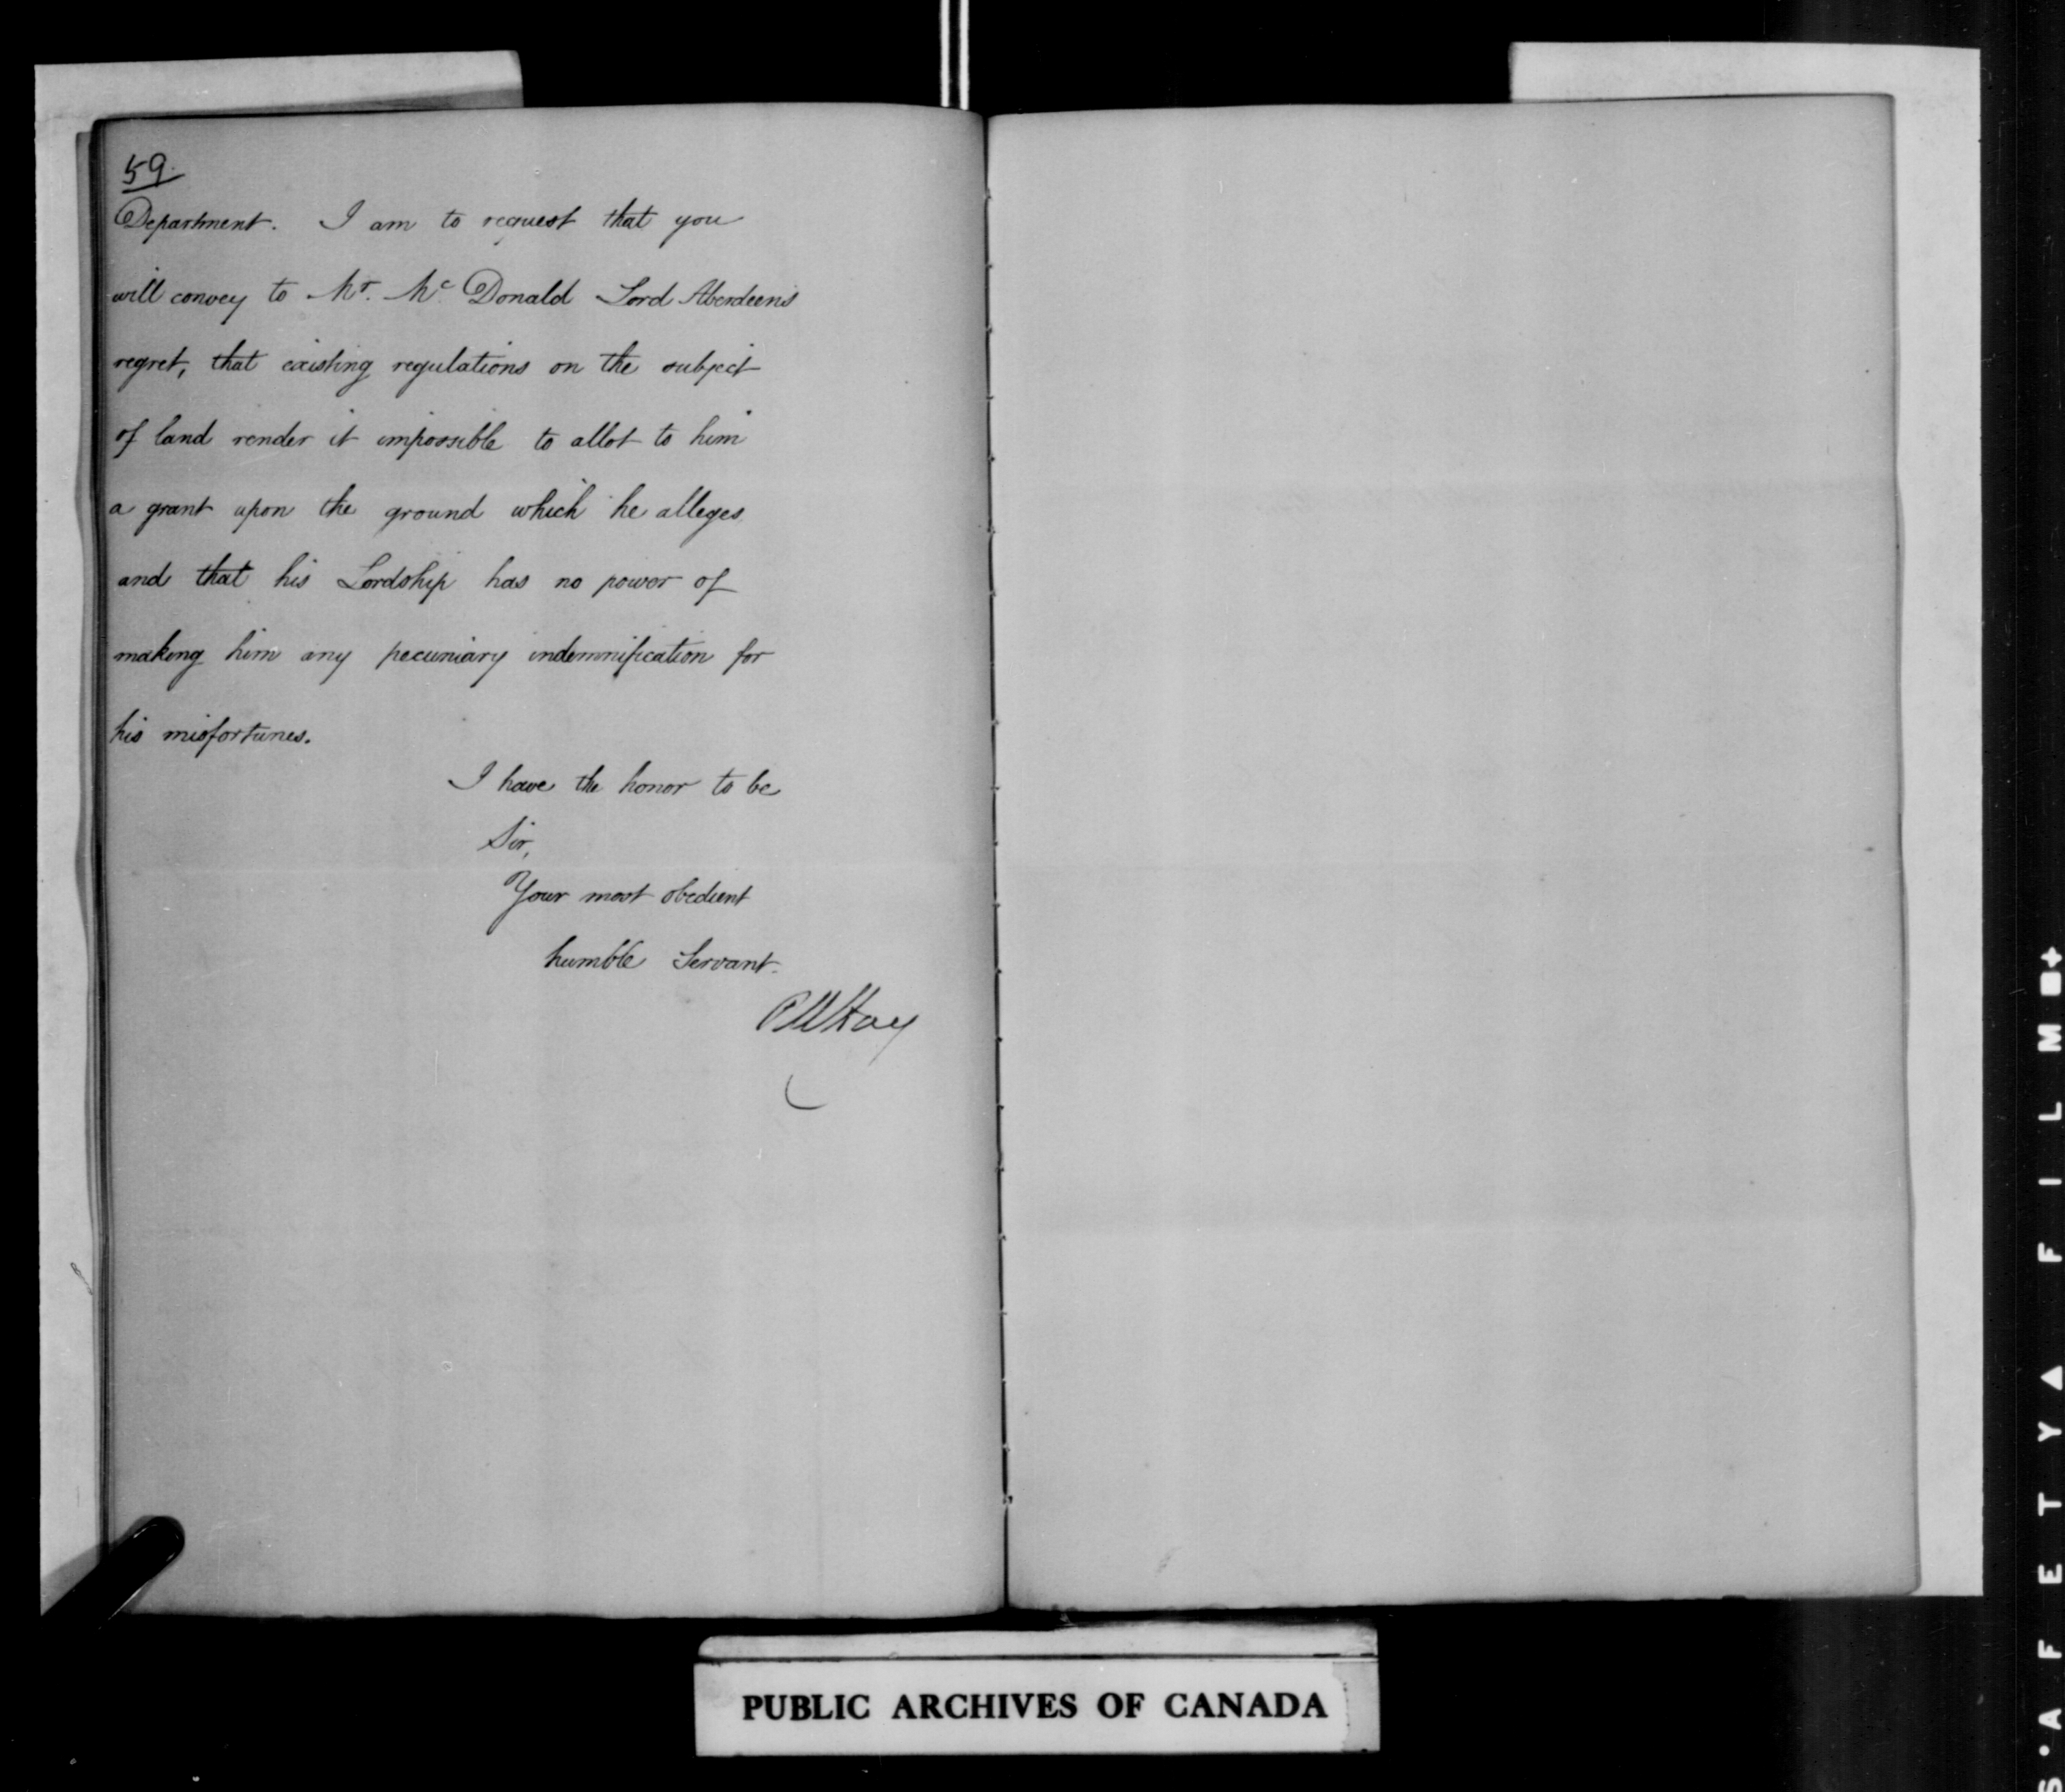 59.
Department. I am to request that you
will convey to Mr. Mc Donald Lord Aberdeen's
regret, that existing regulations on the subject
of land render it impossible to allot to him
a grant upon the ground which he alleges
and that his Lordship has no power of
making him any pecuniary indemnification for
his misfortunes.
I have the honor to be
Sir,
Your most obedient
humble Servant.
RWHay
PUBLIC ARCHIVES OF CANADA
S·AFETY▲FILM■+